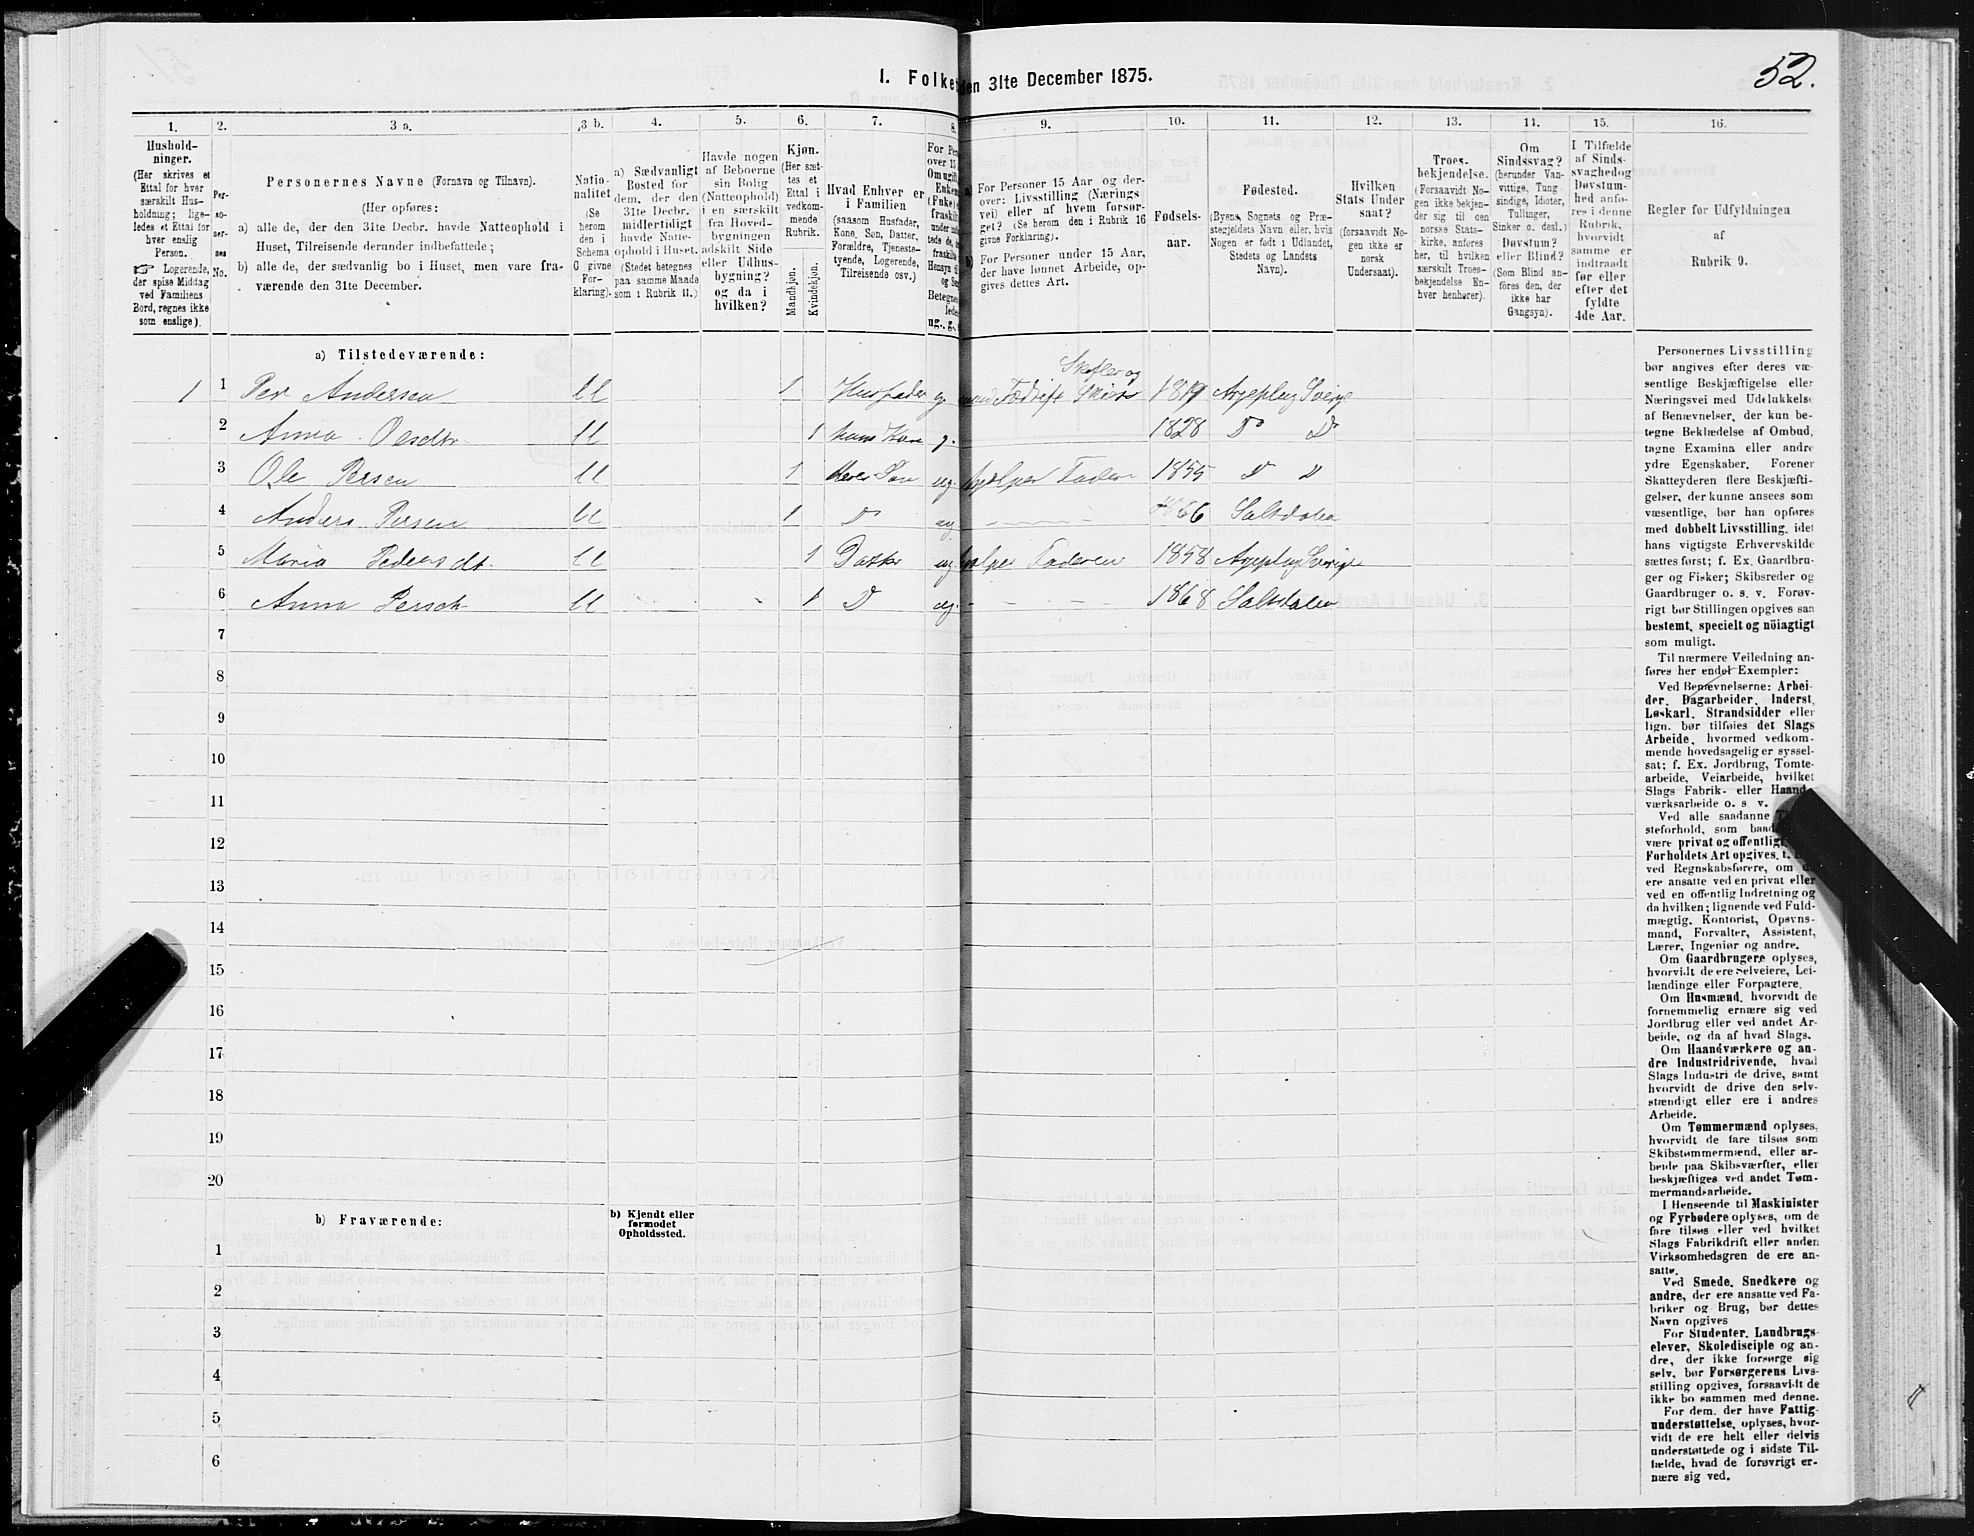 52.
1. Folke den 31te December 1875.
1. 2. 3 a. 3 b. 4. 5. 6. 7. 8. 9. 10. 11. 12. 13. 14. 15. 16.
Hushold-
ninger.
(Her skrives et
Ettal for hver
særskilt Hus-
holdning; lige-
ledes et Ettal for
hver enslig
Person.
☞ Logerende,
der spise Middag
ved Familiens
Bord, regnes ikke
som enslige).
Per-
so-
ner-
nes
No.
Personernes Navne (Fornavn og Tilnavn).
(Her opføres:
a) alle de, der den 31te Decbr. havde Natteophold i
Huset, Tilreisende derunder indbefattede;
b) alle de, der sædvanlig bo i Huset, men vare fra-
værende den 31te December.
Natio-
nalitet
(Se
herom
den i
Schema
G givne
For-
klaring).
a) Sædvanligt
Bosted for
dem, der den
31te Decbr.
midlertidigt
havde Natte-
ophold i Huset.
(Stedet betegnes
paa samme Maade
som i Rubrik 11.)
Havde nogen
af Beboerne
sin Bolig
(Natteophold)
i en særskilt
fra Hoved-
bygningen
adskilt Side
eller Udhus-
bygning?
og da i
hvilken?
Kjøn.
(Her sæt-
tes et
Ettal i
vedkom-
mende
Rubrik.
Mandkjøn.
Kvindekjøn.
Hvad Enhver er
i Familien
(saasom Husfader,
Kone, Søn, Datter,
Forældre, Tjeneste-
tyende, Logerende,
Tilreisende osv.)
For Per
over 15
Om ugift
Enkem
(Fnke)
fraskilt
Betegnes
ledes
ug., g.,
a) For Personer 15 Aar og der-
over: Livsstilling (Nærings
vei) eller af hvem forsør-
get? (Se herom den i Rubrik 16
givne Forklaring).
b) For Personer under 15 Aar,
der have lønnet Arbeide, op-
gives dettes Art.
Fødsels-
aar.
Fødested.
(Byens, Sognets og Præ-
stegjeldets Navn eller, hvis
Nogen er født i Udlandet,
Stedets og Landets
Navn).
Hvilken
Stats Under
saat?
(forsaavidt No-
gen ikke er
norsk
Undersaat).
Troes-
bekjendelse.
(Forsaavidt No-
gen ikke bekjen-
der sig til den
norske Stats-
kirke, anføres
her, til hvilken
særskilt Troes-
bekjendelse En-
hver henhører).
Om
Sindssvag?
(herunder Van-
vittige, Tung-
sindige, Idioter,
Tullinger,
Sinker o. desl.)
Døvstum?
eller Blind?
(Som Blind an-
føres den, der
ikke har
Gangsyn).
I Tilfælde
af Sinds-
svaghedog
Døvstum-
hed anfø-
res i denne
Rubrik,
hvorvidt
samme er
indtraadt
før eller
efter det
fyldte
4de Aar.
Regler for Udfyldningen
af
Rubrik 9.
a) Tilstedeværende:
Skofler og
1 1 Per Andersen ll 1 Husfader g. 1819 Arjeplug Sverige
2 Anna Olsdtr ll 1 hans Kone g. 1828 Do Do
3 Ole Persen ll 1 deres Søn ug. hjælper Faderen 1855 D D
4 Anders Persen ll 1 D ug 1866 Saltdalen
5 Maria Pedersdt. ll 1 Datter ug hjælper Faderen 1858 Arjeplug Sverige
6 Anna ll 1 D ug. 1868 Saltdalen
7
8
9
10
11
12
13
14
15
16
17
18
19
20
b) Fraværende:
b) Kjendt eller
formodet
Opholdssted.
1
2
3
4
5
6
Personernes Livsstilling
bør angives efter deres væ-
sentlige Beskjæftigelse eller
Næringsvei med Udelukkelse
af Benævnelser, der kun be-
tegne Beklædelse af Ombud,
tagne Examina eller andre
ydre Egenskaber. Forener
Skatteyderen flere Beskjæfti-
gelser, der kunne ansees som
væsentlige, bør han opføres
med dobbelt Livsstilling, idet
hans vigtigste Erhvervskilde
sættes først; f. Ex. Gaardbru-
ger og Fisker; Skibsreder og
Gaardbruger o. s. v. Forøv-
rigt bør Stillingen opgives saa
bestemt, specielt og nöiagtigt
som muligt.
Til nærmere Veiledning an-
føres her endel Exempler:
Ved Benævnelserne: Arbei-
der, Dagarbeider, Inderst,
Løskarl, Strandsidder eller
lign. bør tilføies det Slags
Arbeide, hvormed vedkom-
mende hovedsagelig er syssel-
sat; f. Ex. Jordbrug, Tomte-
arbeide, Veiarbeide, hvilket
Slags Fabrik- eller Haand-
værksarbeide o. s v.
Ved alle saadanne
steforhold, som baade
være privat og offentligt,
Forholdets Art opgives, t.
ved Regnskabsførere, om
ere ansatte ved en privat eller
ved en offentlig Indretning og
da hvilken; lignende ved Fuld-
mægtig, Kontorist, Opsyns-
mand, Forvalter, Assistent,
Lærer, Ingeniør og andre.
Om Gaardbrugere oplyses,
hvorvidt de ere Selveiere, Lei-
lændinge eller Forpagtere.
Om Husmænd, hvorvidt de
fornemmelig ernære sig ved
Jordbrug eller ved andet Ar-
beide, og da af hvad Slags.
Om Haandværkere og an-
dre Industridrivende, hvad
Slags Industri de drive, samt
hvorvidt de drive den selv-
stændigt eller ere i andres
Arbeide.
Om Tømmermænd oplyses,
hvorvidt de fare tilsøs som
Skibstømmermænd, eller ar-
beide paa Skibsværfter, eller
beskjæftiges ved andet Tøm-
mermandsarbeide.
I Henseende til Maskinister
og Fyrbødere oplyses, om de
fare tilsøs eller ved hvilket
Slags Fabrikdrift eller anden
Virksomhedsgren de ere an-
satte.
Ved Smede, Snedkere og
andre, der ere ansatte ved Fa-
briker og Brug, bør dettes
Navn opgives
For Studenter, Landbrugs-
elever, Skoledisciple og an-
dre, der ikke forsørge sig
selv, bør Forsørgerens Livs-
stilling opgives, forsaavidt de
ikke bo sammen med denne.
For dem, der have Fattig-
understøttelse, oplyses, hvor-
vidt de ere helt eller delvis
understøttede og i sidste Til-
fælde, hvad de forøvrigt er-
nære sig ved.